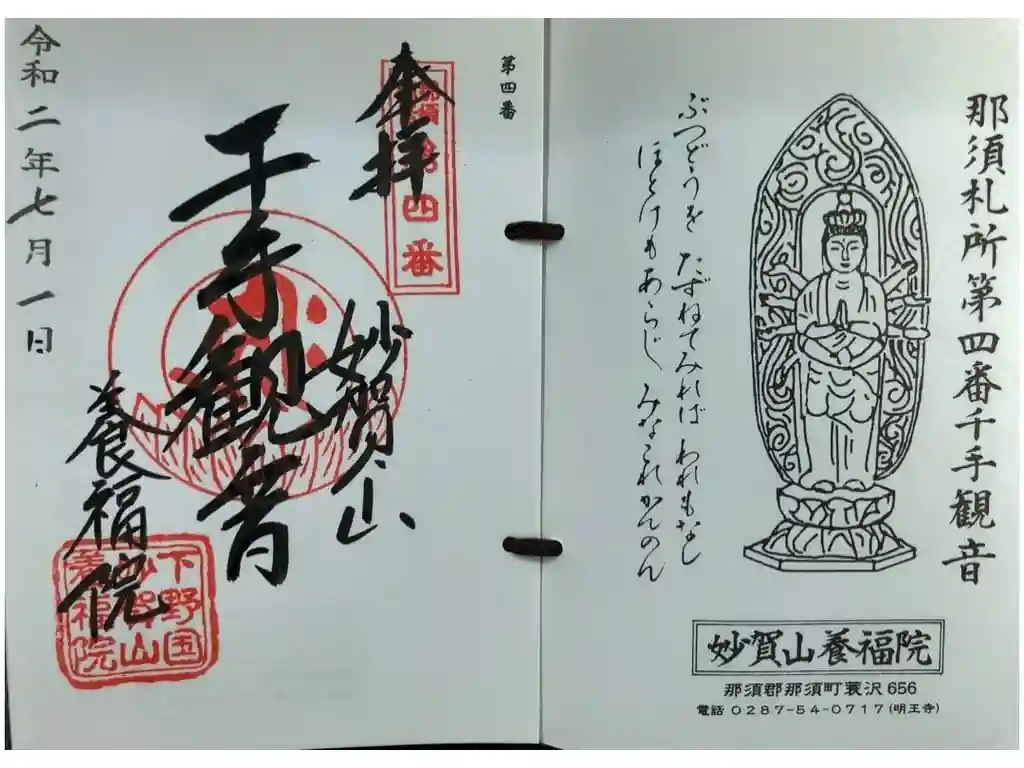 那須札所第四番千手観音
ぶつどうを たずねてみれば われもなし
ほとけもあらじ みなこれかんのん
妙賀山養福院
那須郡那須町蓑沢 656
電話 0287-54-0717 (明王寺)
第四番
奉拝
那須 四番
妙賀山
千手観音
養福院
下野国
妙賀山
養福院
令和二年七月一日